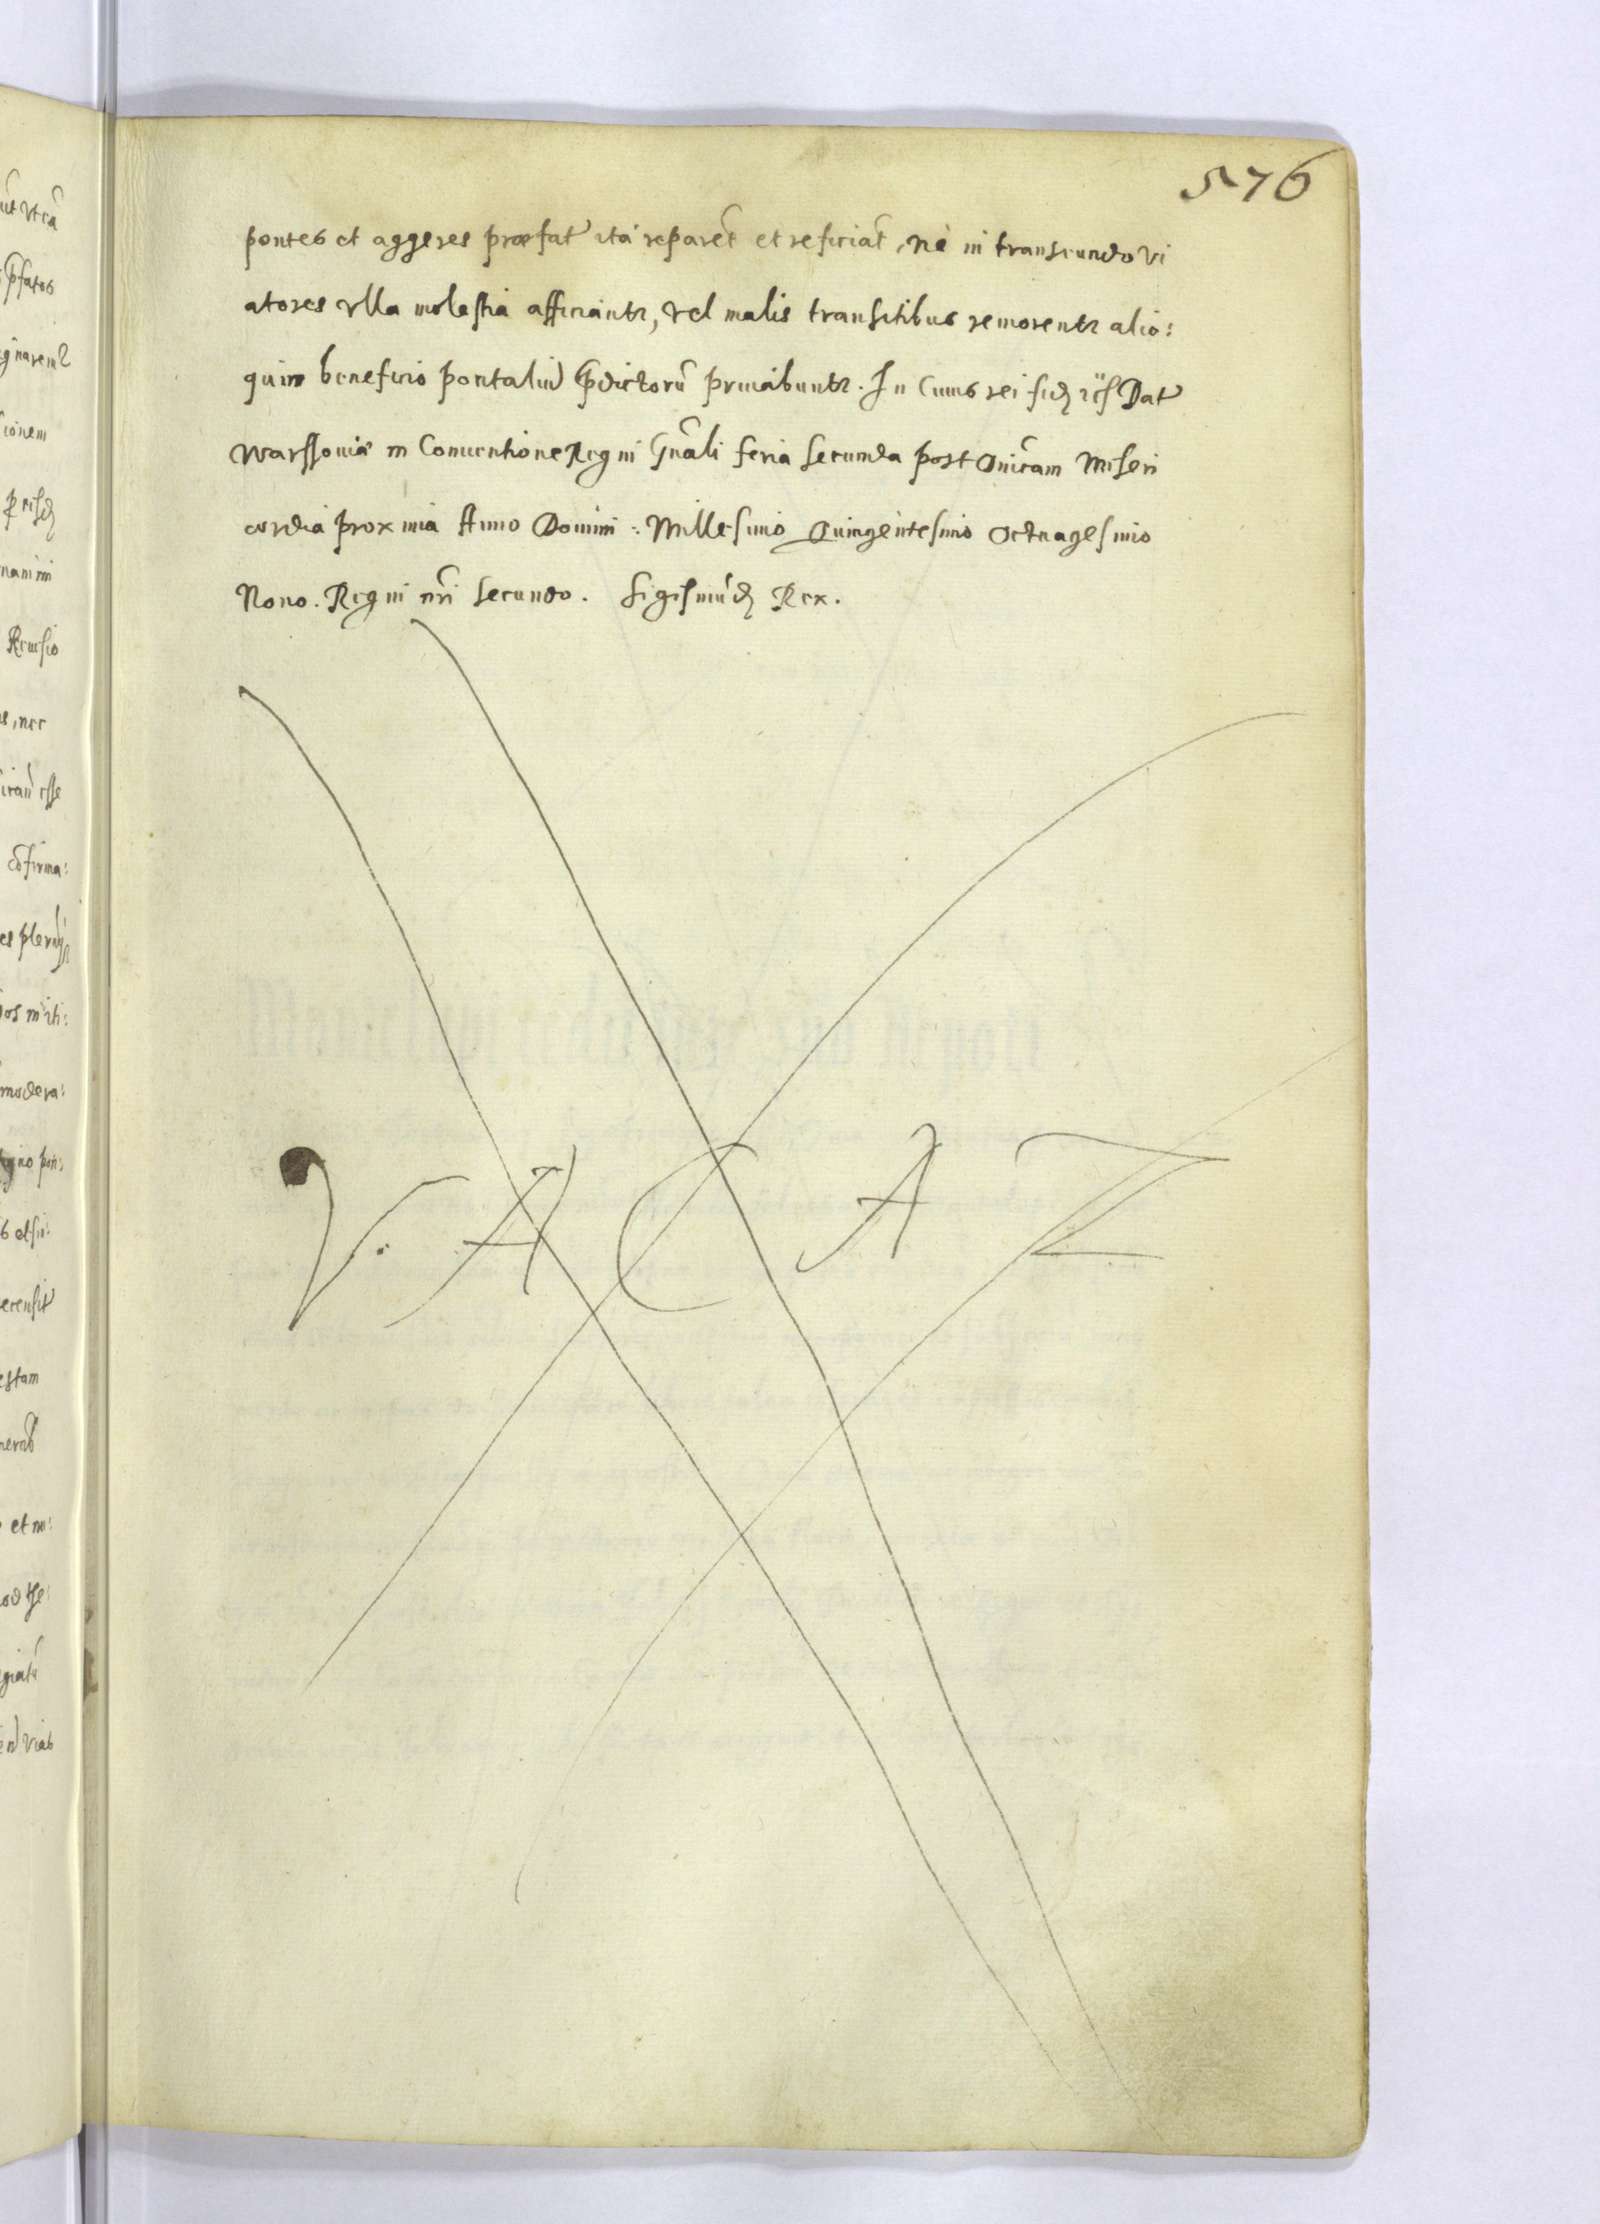 576
pontes et aggeres præfat ita reparēt et reficiāt, nè in transeundo vi
atores vlla molestia afficiantr, vel malis transitibus remorentr alio:
quin beneficio pontaliū pdictorū priuabuntr. In Cuius rei fidz Dat
Warssouiæ in Conuentione Regni Gnāli feria secunda post Dnīcam Miseri
cordia proxima Anno Domini: Millesimo Quingentesimo Octuagesimo
Nono. Regni nri secundo. Sigismūdz Rex.
V. A C A T